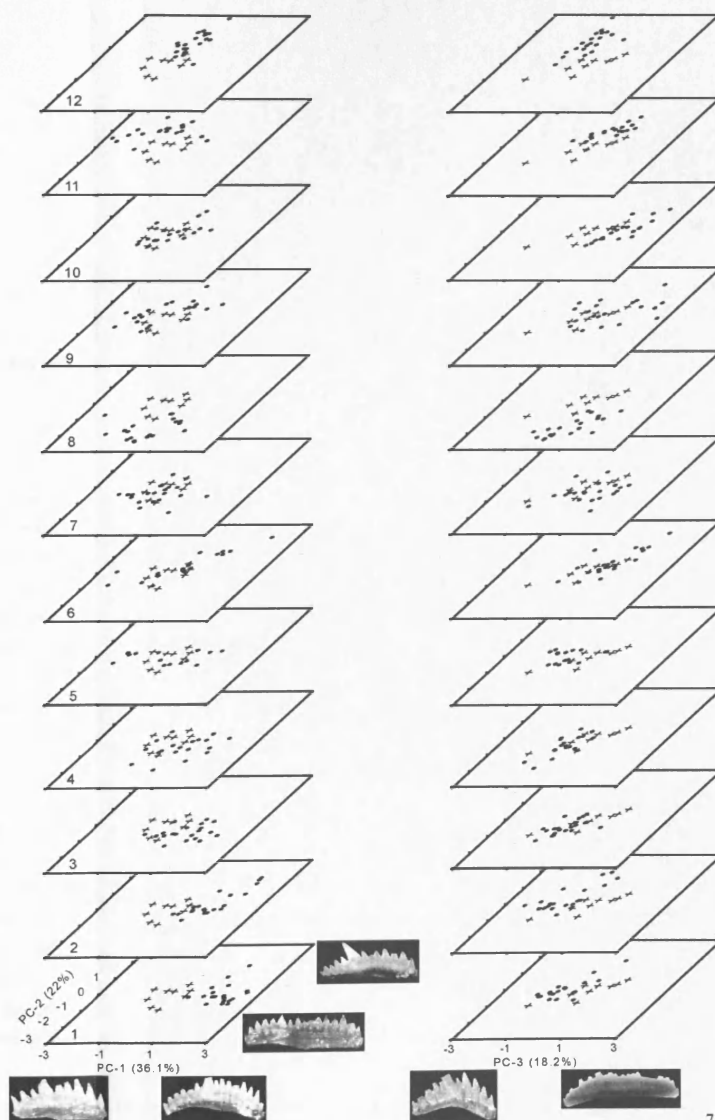 12
11
10
9
8
7
6
5
4
3
2
PC-2 (22%)
-3 -2 -1 0 1
1
-3 -1 1 3
PC-1 (36.1%)
-3 -1 1 3
PC-3 (18.2%)